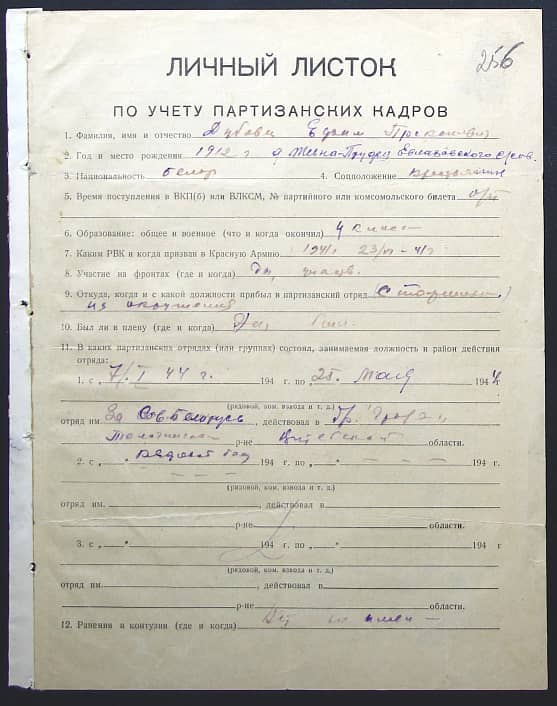 256
ЛИЧНЫЙ ЛИСТОК
ПО УЧЕТУ ПАРТИЗАНСКИХ КАДРОВ
1. Фамилия, имя и отчество
2. Год и место рождения 1912 г
3. Национальность белор 4. Соцположение крестьянин
5. Время поступления в ВКП(б) или ВЛКСМ, № партийного или комсомольского билета б/п
6. Образование: общее и военное (что и когда окончил) 4 класса
7. Каким РВК и когда призван в Красную Армию 1941 г
8. Участие на фронтах (где и когда) Да,
9. Откуда, когда и с какой должности прибыл в партизанский отряд
из окружения
10. Был ли в плену (где и когда).
11. В каких партизанских отрядах (или группах) состоял, занимаемая должность и район действия
отряда:
1. с 7/I 44 г. 194 г. по „25. мая 194 4
(рядовой, ком. взвода и т. д.)
отряд им За Сов. Беларусь, действовал в
Толочинском р-не Витебской области.
2. с „ рядовой 194 г. по „ — — — 194 г
(рядовой, ком. взвода и т. д.)
отряд им. , действовал в
р-не области.
3. с „ “ 194 г. по „ “ 194 г
(рядовой, ком. взвода и т. д.)
отряд им. , действовал в
р-не области.
12. Ранения и контузии (где и когда)